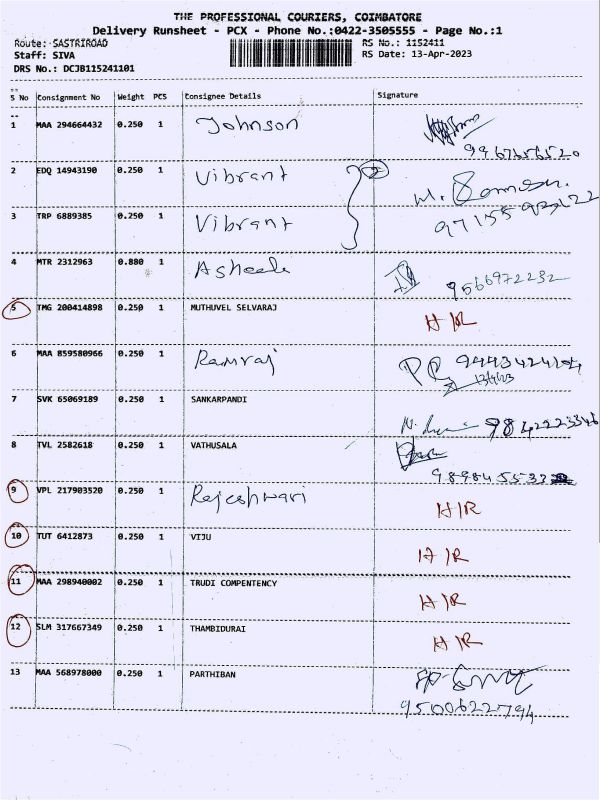 THE PROFESSIONAL COURIERS, COIMBATORE
Delivery Runsheet - PCX - Phone No.:0422-3505555 - Page No.:1
Route: SASTRIROAD
RS No.: 1152411
Staff: SIVA
RS Date: 13-Apr-2023
DRS No.: DCJB115241101
S No Consignment No Weight PCS Consignee Details Signature
1 MAA 294664432 0.250 1 Johnson
9967656520
2 EDQ 14943190 0.250 1 Vibrant 2
3 TRP 6889385 0.250 1 Vibrant
4 MTR 2312963 0.880 1 9566972232
5 TMG 200414898 0.250 1 MUTHUVEL SELVARAJ H/R
6 MAA 859580966 0.250 1 Ramraj
13/4/23
7 SVK 65069189 0.250 1 SANKARPANDI
9842223346
8 TVL 2582618 0.250 1 VATHUSALA
9 VPL 217903520 0.250 1 Rajeshwari H/R
10 TUT 6412873 0.250 1 VIJU H/R
11 MAA 298940002 0.250 1 TRUDI COMPENTENCY H/R
12 SLM 317667349 0.250 1 THAMBIDURAI H/R
13 MAA 568978000 0.250 1 PARTHIBAN
9500622794